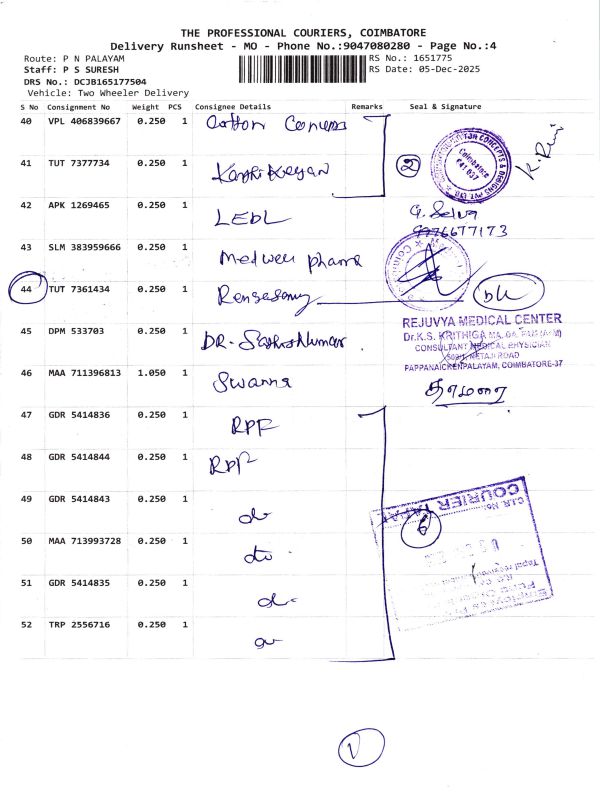 THE PROFESSIONAL COURIERS, COIMBATORE
Delivery Runsheet - MO - Phone No.:9047080280 - Page No.:4
Route: P N PALAYAM
RS No.: 1651775
Staff: P S SURESH
RS Date: 05-Dec-2025
DRS No.: DCJB165177504
Vehicle: Two Wheeler Delivery
S No Consignment No Weight PCS Consignee Details Remarks Seal & Signature
40 VPL 406839667 0.250 1 Cotton
41 TUT 7377734 0.250 1 2
Coimbatore
641 037
42 APK 1269465 0.250 1 LEDL G. Selva
9976677173
43 SLM 383959666 0.250 1 Medwell pharma
44 TUT 7361434 0.250 1
REJUVYA MEDICAL CENTER
Dr.K.S. KRITHIGA
CONSULTANT MEDICAL PHYSICIAN
NETAJI ROAD
PAPPANAICKENPALAYAM, COIMBATORE-37
45 DPM 533703 0.250 1 DR.
46 MAA 711396813 1.050 1 Swarna
47 GDR 5414836 0.250 1 RPF
48 GDR 5414844 0.250 1 RPF
49 GDR 5414843 0.250 1 do
COURIER TAPAL
50 MAA 713993728 0.250 1 do
51 GDR 5414835 0.250 1 do
52 TRP 2556716 0.250 1 do